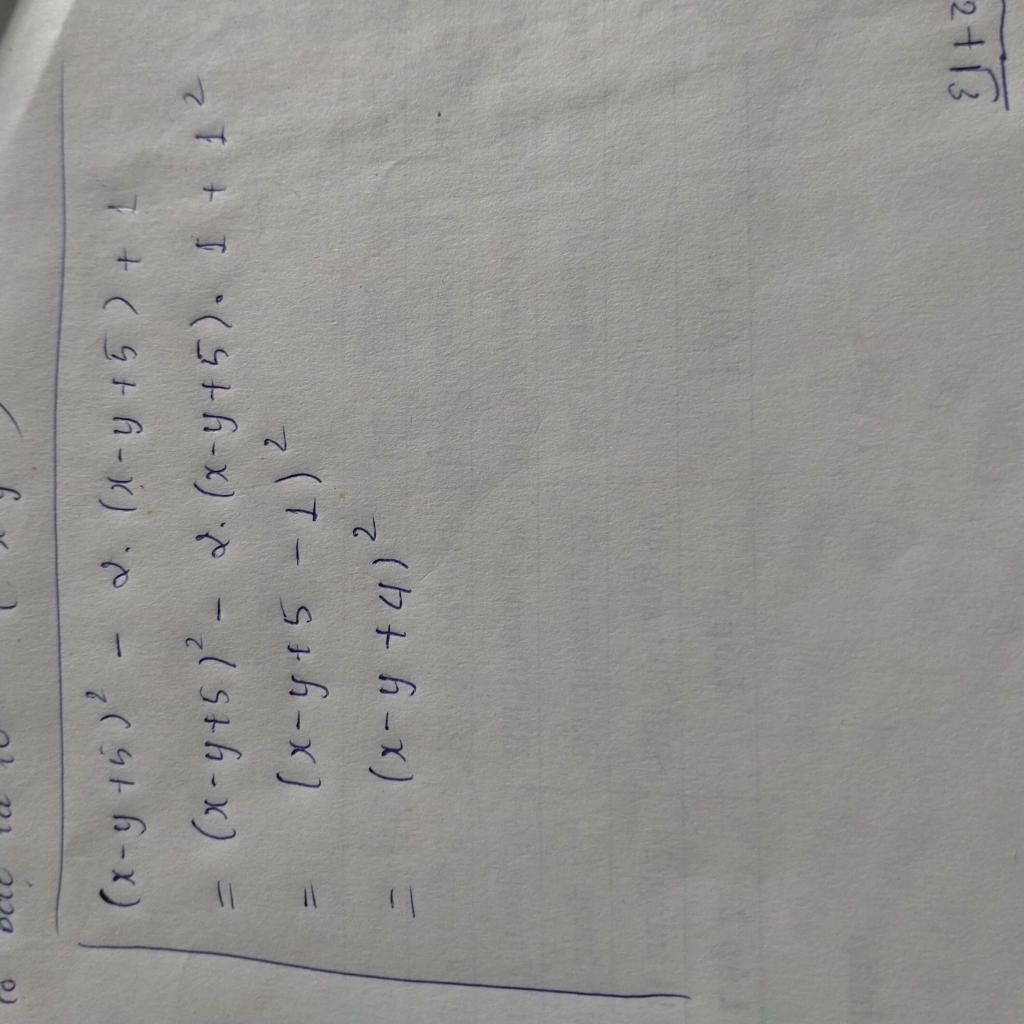 (x-y+5)² - 2.(x-y+5)+1
= (x-y+5)² - 2.(x-y+5).1+1²
= (x-y+5-1)²
= (x-y+4)²
2+√3